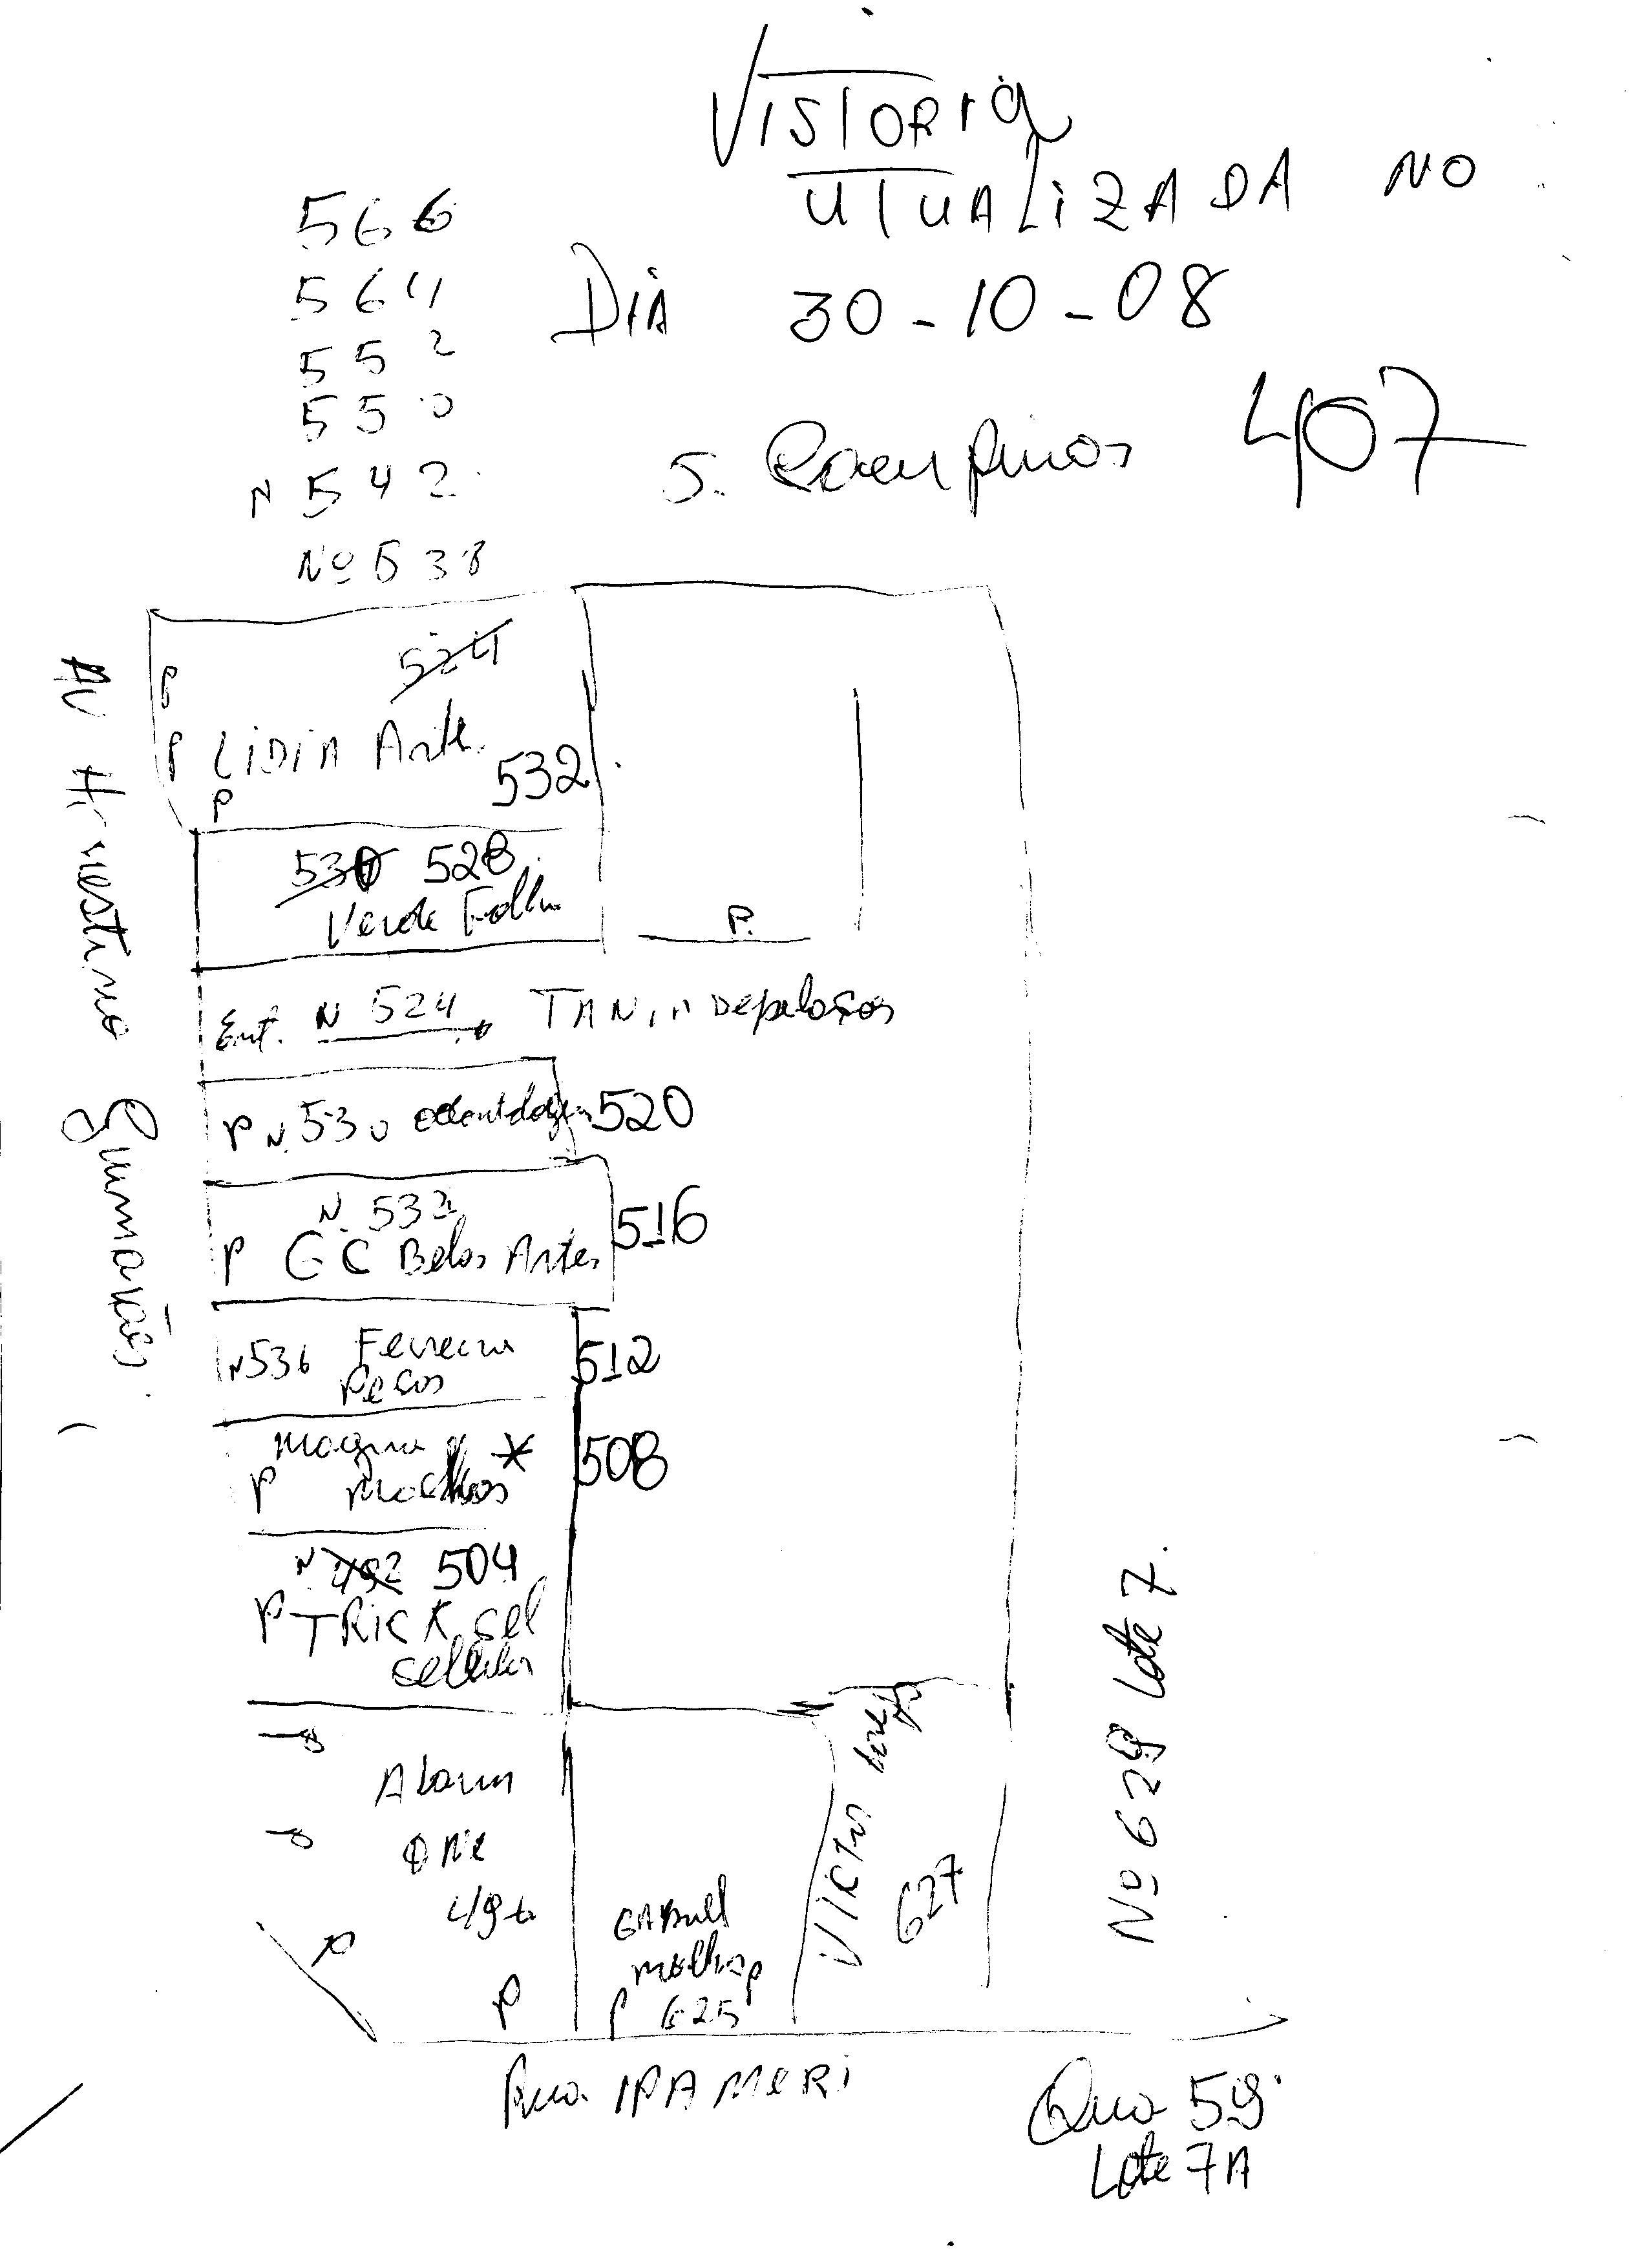 VISTORIA
UTUALIZADA NO
DIA 30-10-08
S. Campinas 407
566
564
552
550
N 542
Nº 538
AV Honestino Guimarães.
524
P
P LIDIA Arte.
532
P
530 528
Verde Folha
P.
Ent. N 524 TANIA Depilações
P N. 530 odontologia 520
N. 532
P GC Belas Artes 516
N 536 Ferreira 512
Peças
Magna * 508
P
N 492 504
P TRICK cel
P
Alarm
P
ONE
P
P
GABriel
P
P 625
627
Nº 629 Lote 7.
Rua IPAMERI
Qua 59
Lote 7A